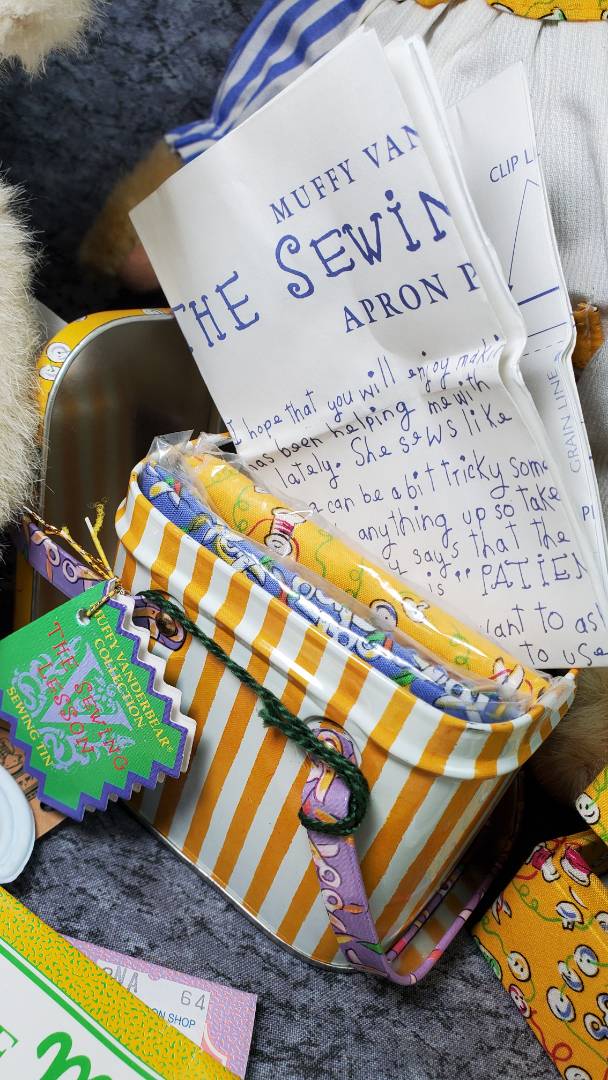 MUFFY VAN
THE SEWIN
APRON P
I hope that you will enjoy makin
has been helping me with
lately. She sews like
can be a bit tricky some
anything up so take
says that the
is "PATIEN
want to as
to use
CLIP L
GRAIN LINE
MUFFY VANDERBEAR®
COLLECTION
THE SEWING
LESSON
SEWING TIN
NA
64
ON SHOP